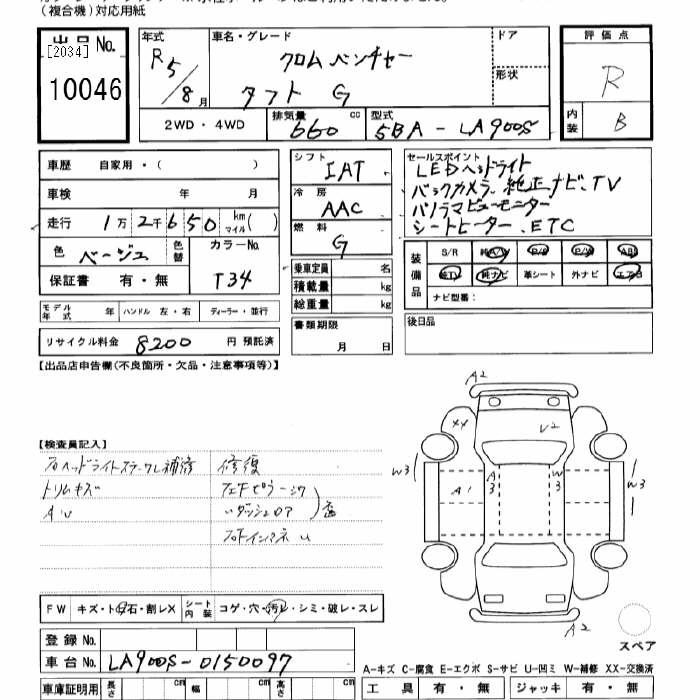 (複合機)対応用紙
出品 No.
[2034]
10046
年式
R5/8月
車名・グレード
クロムベンチャー
タフト G
ドア
形状
2WD・4WD
排気量
660 cc
型式
5BA - LA900S
評価点
R
内装
B
車歴 自家用・( )
車検 年 月
走行 1万2千650 km マイル( )
色 ベージュ
色替
カラーNo.
T34
保証書 有・無
モデル年式 年 ハンドル 左・右 ディーラー・並行
リサイクル料金 8200 円 預託済
シフト
IAT
冷房
AAC
燃料
G
乗車定員 名
積載量 kg
総重量 kg
書類期限
月 日
セールスポイント
LEDヘッドライト
バックカメラ、純正ナビ、TV
パノラマビューモニター
シートヒーター、ETC
装備品
S/R 純A/W P/S P/W ABS
純TV 純ナビ 革シート 外ナビ エアB
ナビ型番:
後日品
【出品店申告欄(不良箇所・欠品・注意事項等)】
【検査員記入】
トリムキズ
修復
FW キズ・ト石・割レX
シート内装 コゲ・穴・汚レ・シミ・破レ・スレ
登録No.
車台No. LA900S-0150097
車庫証明用 長さ cm 幅 cm 高さ cm
A2
XX
U2
W3
A3
W3
W3
A1
A2
スペア
A-キズ C-腐食 E-エクボ S-サビ U-凹ミ W-補修 XX-交換済
工具 有・無 ジャッキ 有・無